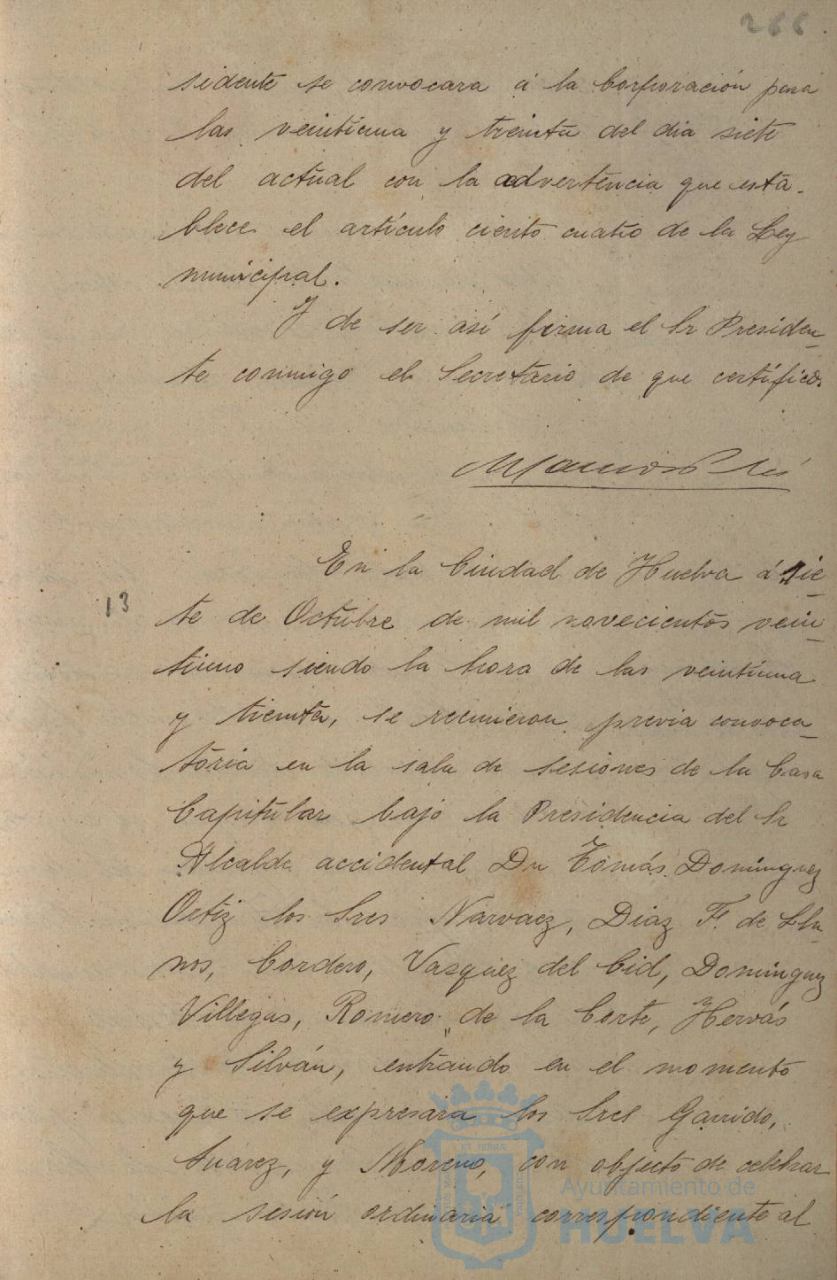 266
sidente se convocara á la Corporación para
las veintiuna y treinta del dia siete
del actual con la advertencia que esta-
blece el artículo ciento cuatro de la Ley
municipal.
Y de ser así firma el Sr Presiden-
te conmigo el Secretario de que certifico.
En la Ciudad de Huelva á sie-
13
te de Octubre de mil novecientos vein-
tiuno siendo la hora de las veintiuna
y treinta, se reunieron previa convoca-
toria en la sala de sesiones de la Casa
Capitular bajo la Presidencia del Sr
Alcalde accidental Dn Tomás Dominguez
Ortiz los Sres Narvaez, Diaz F. de Lla-
nos, Cordero, Vazquez del Cid, Dominguez
Villegas, Romero de la Corte, Hervás
y Silván, entrando en el momento
que se expresará los Sres Garrido,
Suarez, y Moreno, con objeto de celebrar
la sesión ordinaria correspondiente al
Ayuntamiento de
HUELVA